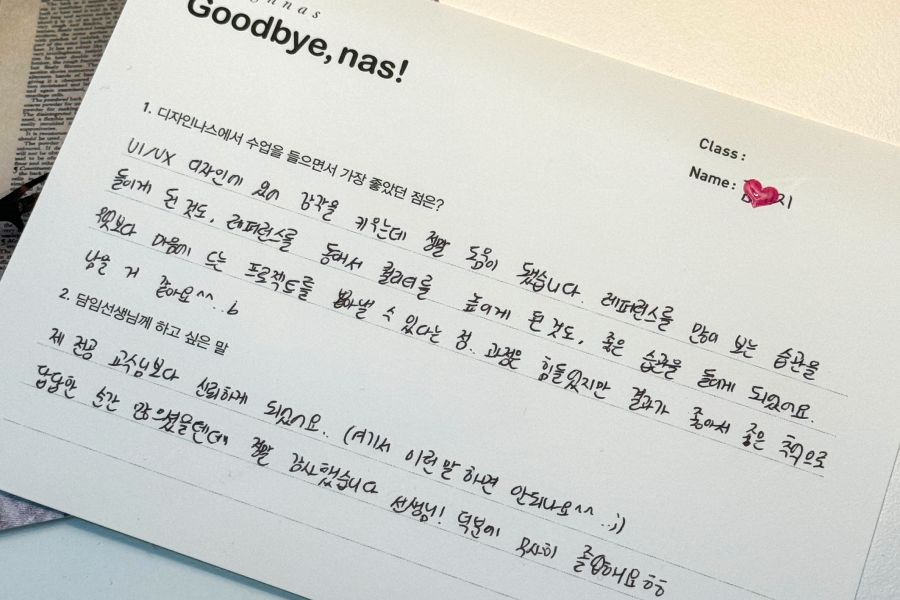 Goodbye, nas!
Class:
Name:
1. 디자인나스에서 수업을 들으면서 가장 좋았던 점은?
UI/UX 디자인에 있어 감각을 키우는데 정말 도움이 됐습니다. 레퍼런스를 많이 보는 습관을
들이게 된 것도, 레퍼런스를 통해서 퀄리티를 높이게 된 것도, 좋은 습관을 들이게 되었어요.
무엇보다 마음에 드는 프로젝트를 뽑아낼 수 있다는 점. 과정은 힘들었지만 결과가 좋아서 좋은 추억으로
남을 거 좋아요^^..b
2. 담임선생님께 하고 싶은 말
제 전공 교수님보다 신뢰하게 되었어요.. (여기서 이런 말 하면 안되나요^^..;;)
답답한 순간 많으셨을텐데 정말 감사했습니다 선생님! 덕분에 무사히 졸업해요ㅎㅎ